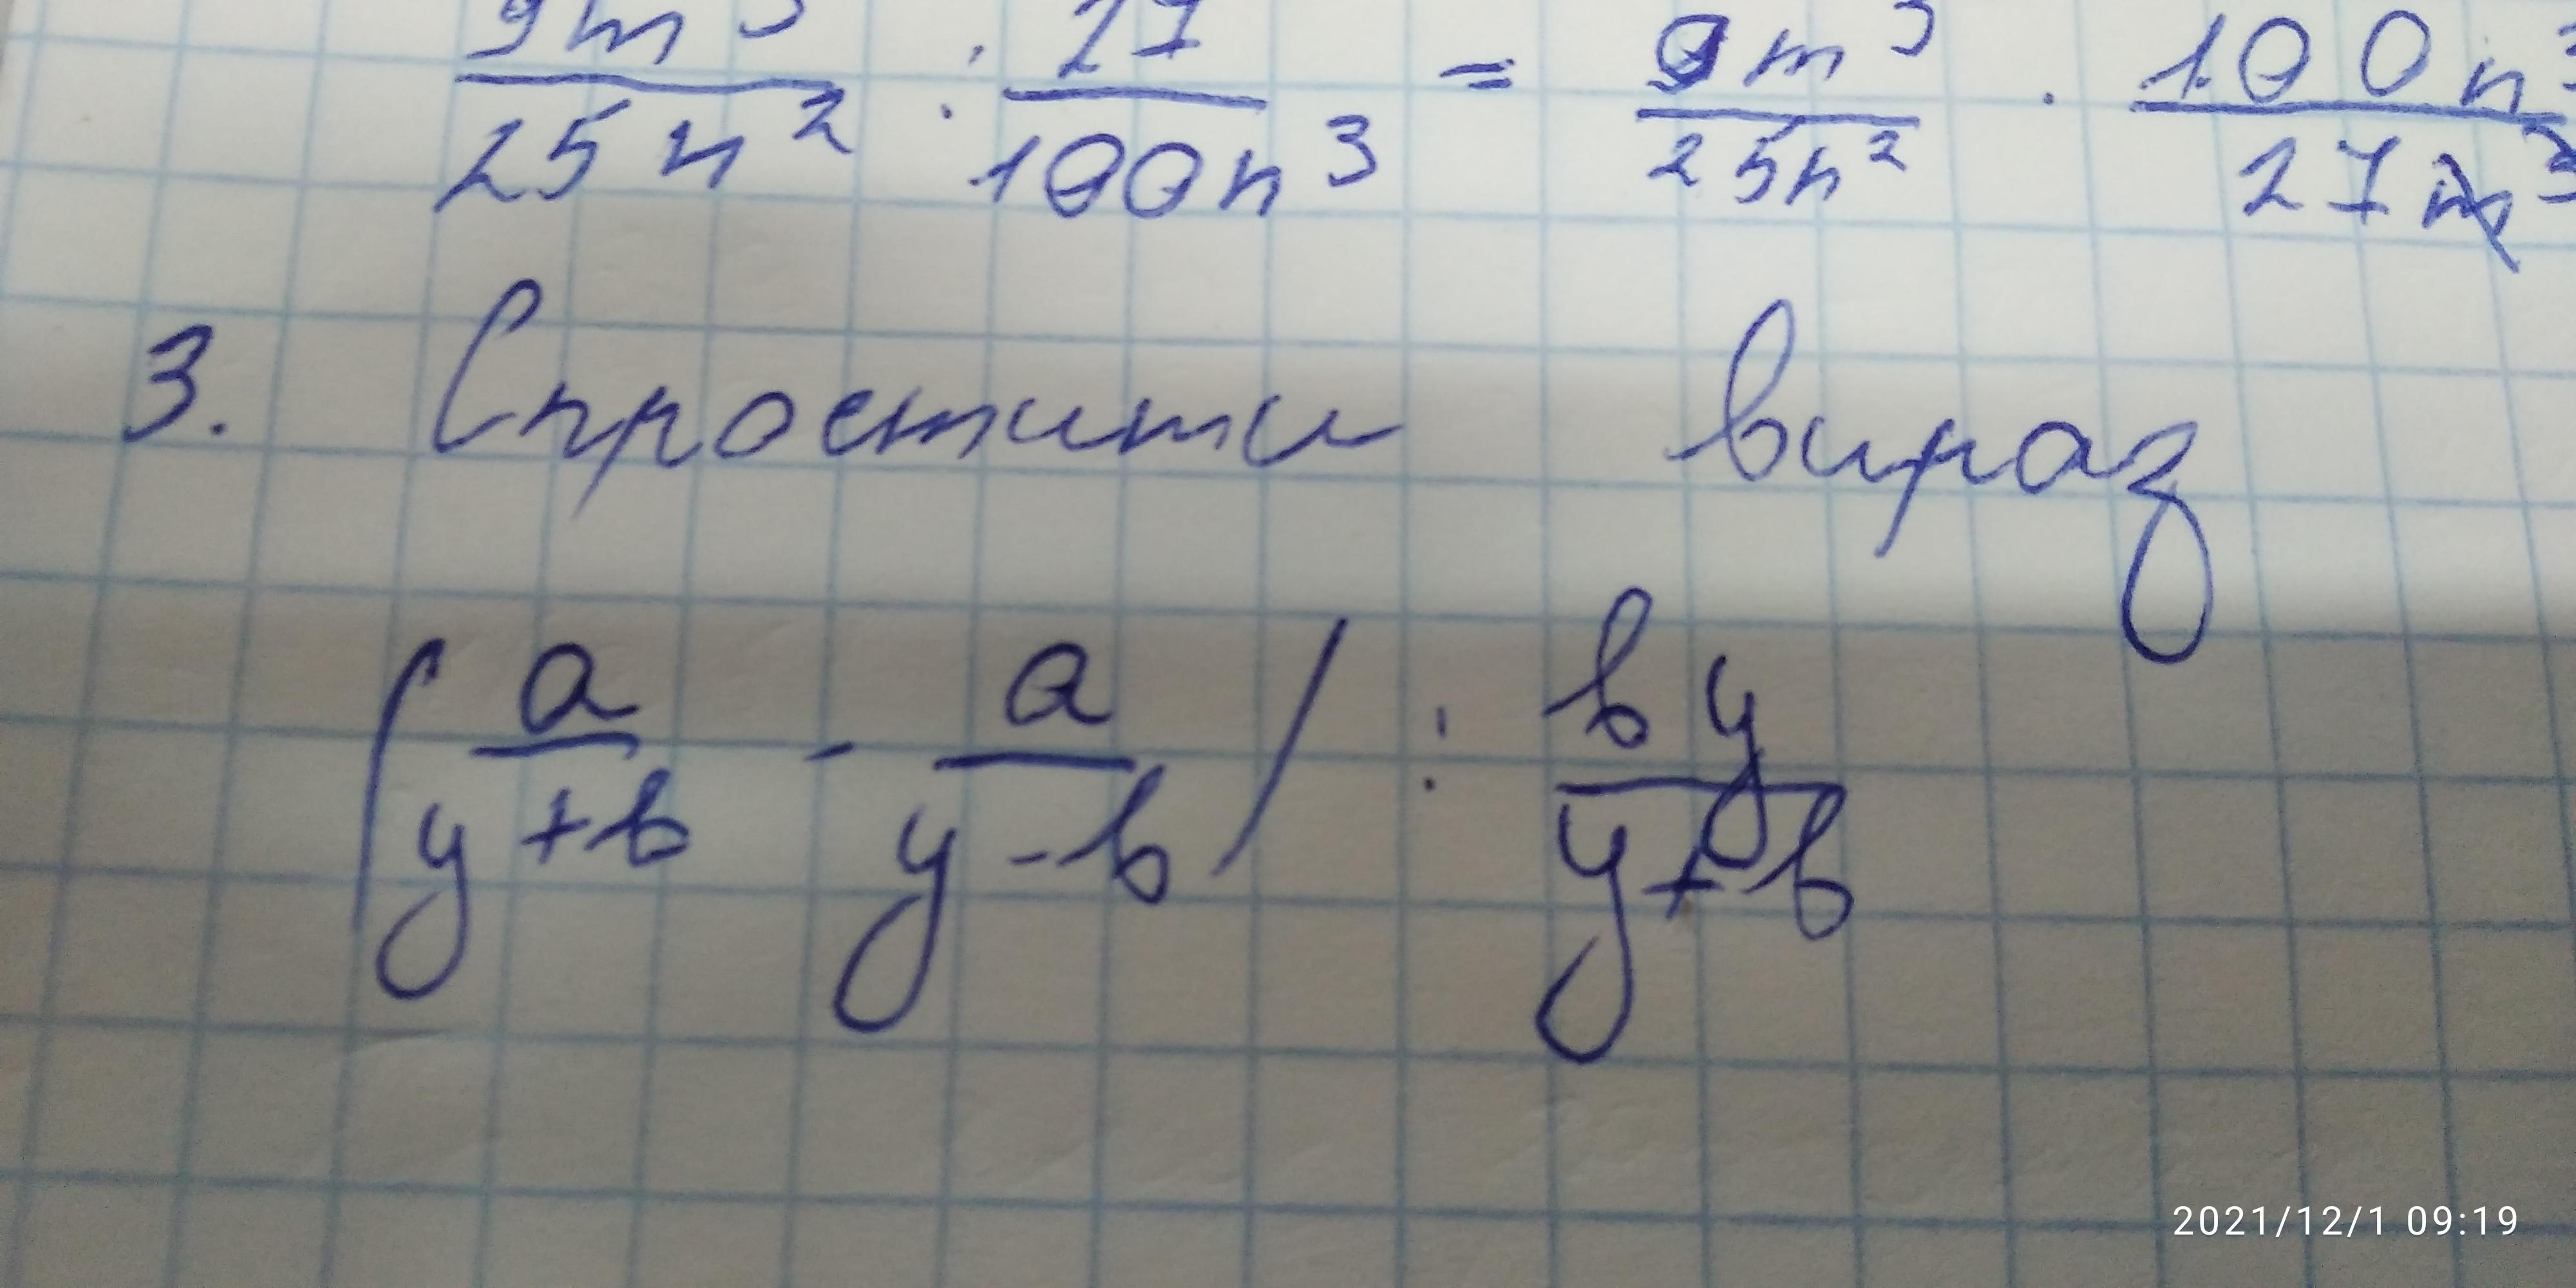 9m³/25n² : 27/100n³ = 9m³/25n² · 100n³/27
3. Спростити вираз
(a/(y+b) - a/(y-b)) : by/(y+b)
2021/12/1 09:19